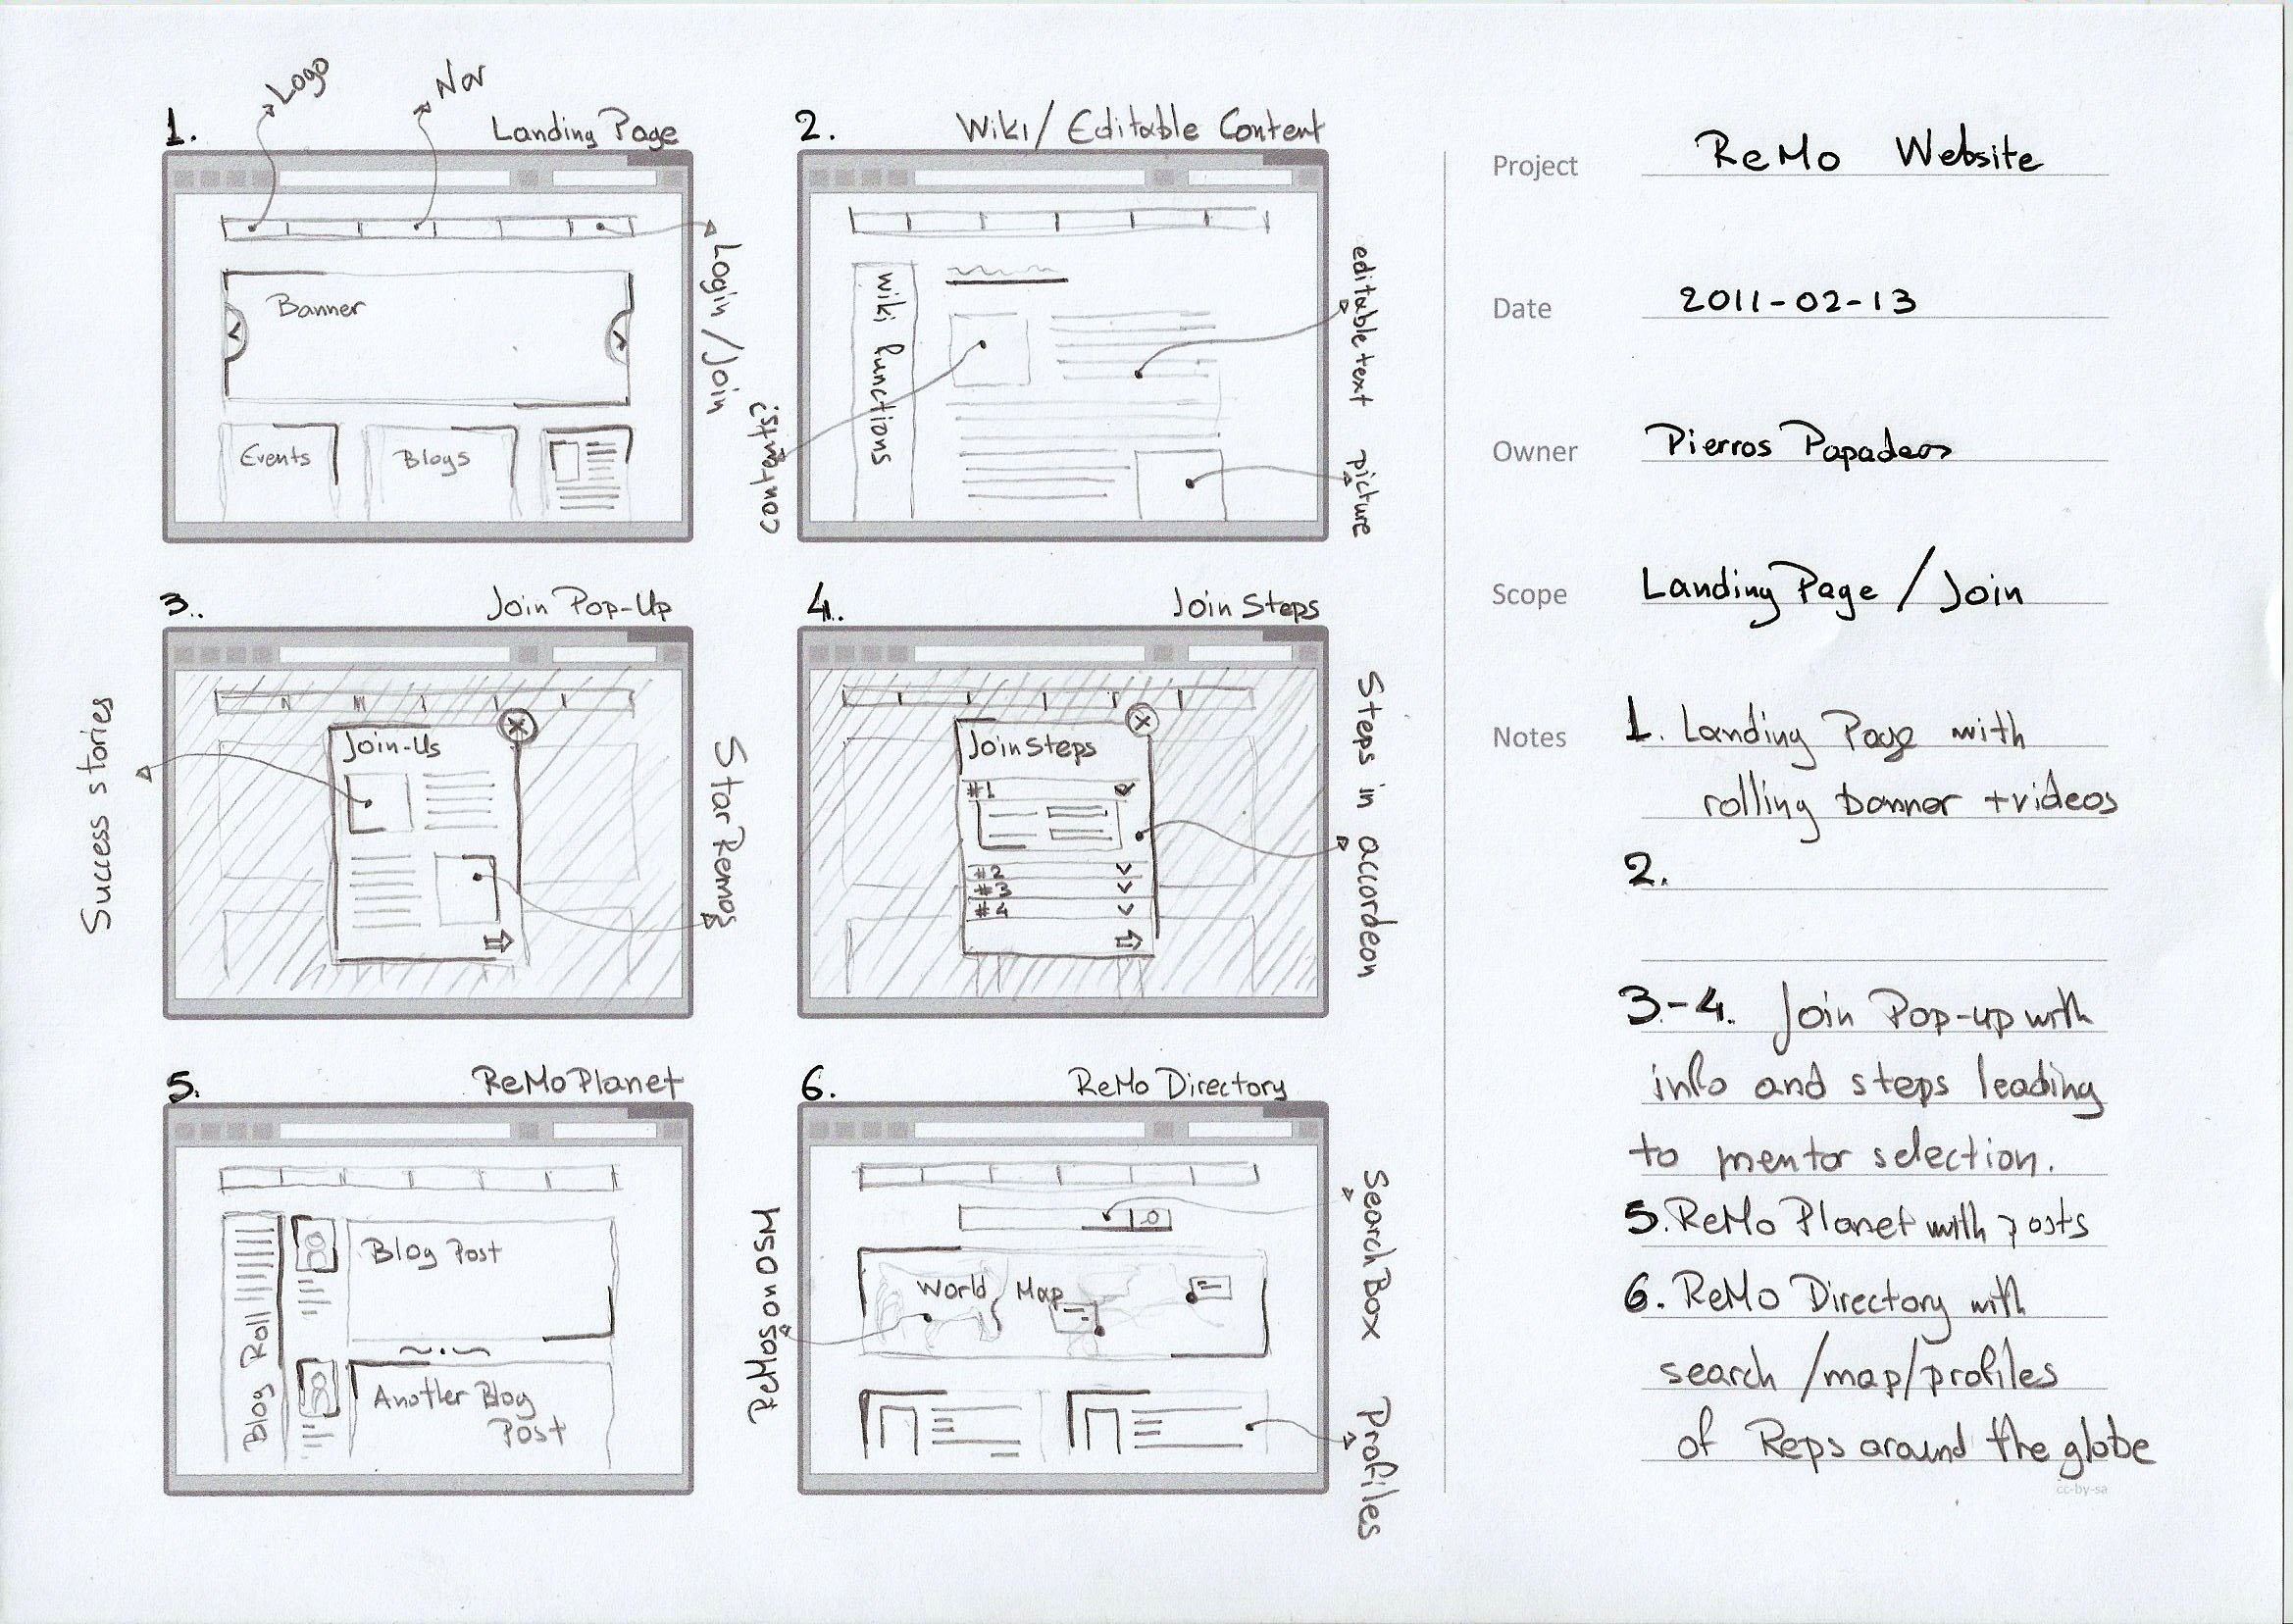 Logo
Nav
1.
Landing Page
Login / Join
Banner
Events
Blogs
2.
Wiki / Editable Content
wiki functions
editable text
picture
content(s)?
3.
Join Pop-Up
Join-Us
Success stories
Star Remos
4.
Join Steps
Join Steps
#1
#2
#3
#4
Steps in accordeon
5.
ReMo Planet
Blog Roll
Blog Post
Another Blog
Post
6.
ReMo Directory
World Map
ReMos on OSM
Search Box
Profiles
Project
ReMo Website
Date
2011-02-13
Owner
Pierros Papadeas
Scope
Landing Page / Join
Notes
1. Landing Page with
rolling banner + videos
2.
3-4. Join Pop-up with
info and steps leading
to mentor selection.
5. ReMo Planet with posts
6. ReMo Directory with
search /map/profiles
of Reps around the globe
cc-by-sa